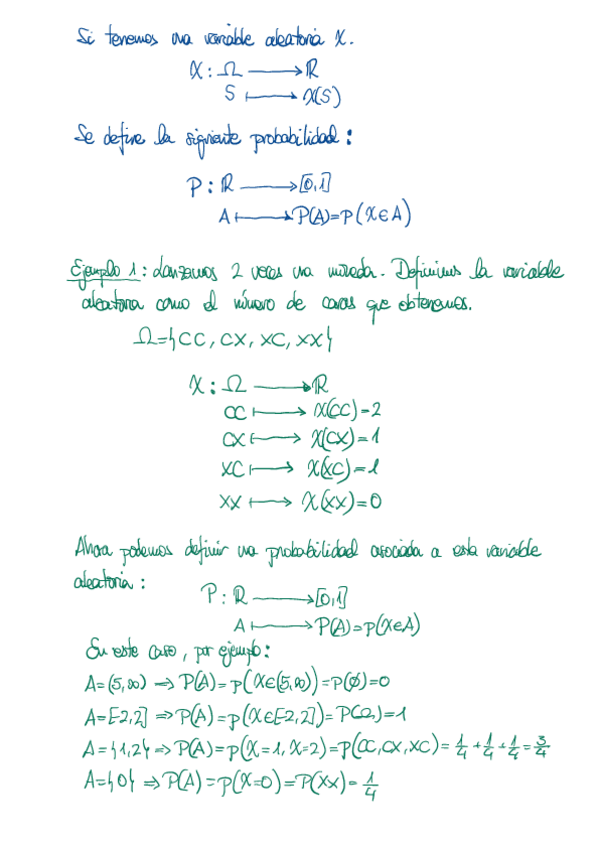 Si tenemos una variable aleatoria X.
X : Ω ⟶ ℝ
S ⟼ X(S)
Se define la siguiente probabilidad :
P : ℝ ⟶ [0,1]
A ⟼ P(A)=p(X∈A)
Ejemplo 1 : Lanzamos 2 veces una moneda. Definimos la variable
aleatoria como el número de caras que obtenemos.
Ω={CC, CX, XC, XX}
X : Ω ⟶ ℝ
CC ⟼ X(CC)=2
CX ⟼ X(CX)=1
XC ⟼ X(XC)=1
XX ⟼ X(XX)=0
Ahora podemos definir una probabilidad asociada a esta variable
aleatoria :
P : ℝ ⟶ [0,1]
A ⟼ P(A)=p(X∈A)
En este caso, por ejemplo :
A=(5,∞) ⇒ P(A)=p(X∈(5,∞))=p(∅)=0
A=[-2,2] ⇒ P(A)=p(X∈[-2,2])=P(Ω)=1
A={1,2} ⇒ P(A)=p(X=1, X=2)=p(CC,CX,XC)= 1/4 + 1/4 + 1/4 = 3/4
A={0} ⇒ P(A)=p(X=0)=P(XX)= 1/4